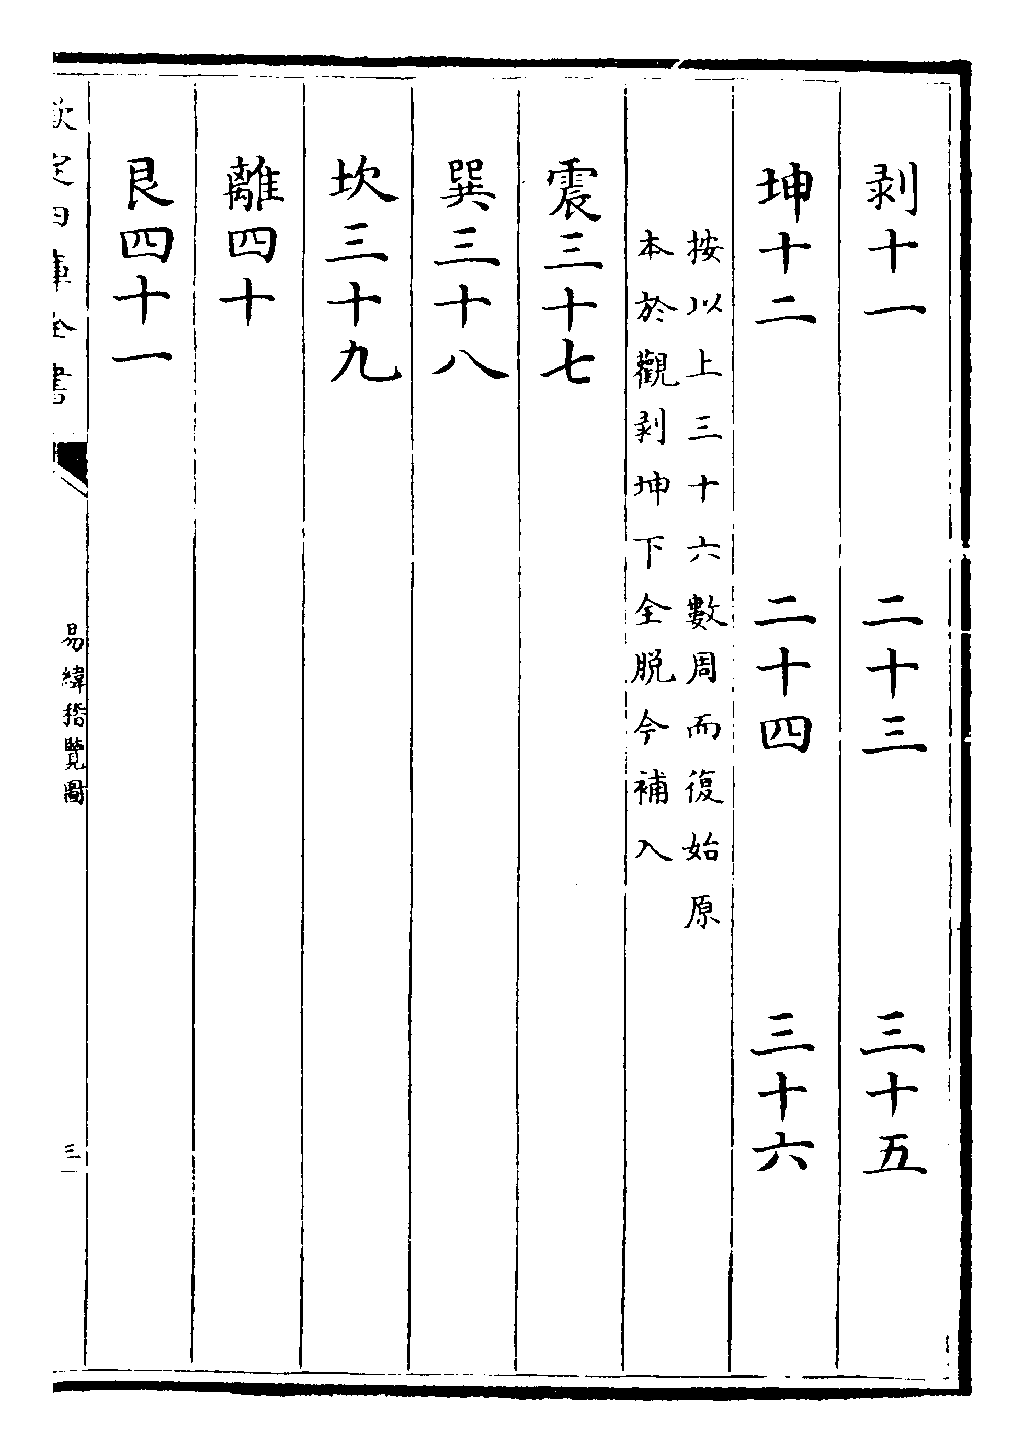 剥十一　二十三　三十五
坤十二　二十四　三十六
按以上三十六數周而復始原
本於觀剥坤下全脱今補入
震三十七
巽三十八
坎三十九
離四十
艮四十一
欽定四庫全書
易緯稽覽圖
三